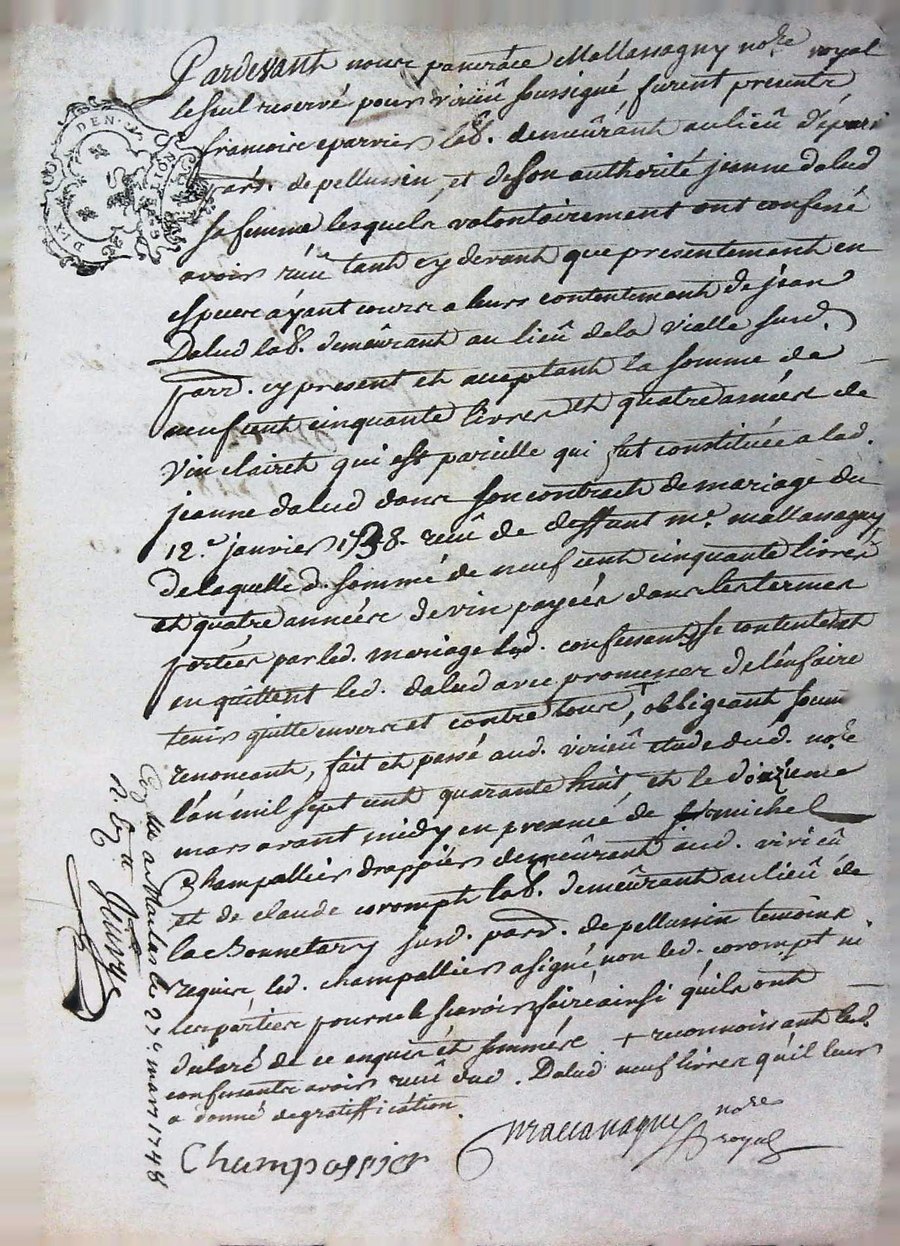 Pardevant nous pancrace Mallassagny no.re royal
le seul reservé pour virieû soussigné furent presents
francoise eparvier lab. demeûrant au lieû d'épari
parr. de pellussin, et de son authorité jeanne dalud
sa femme lesquels volontairement ont confessé
avoir reçû tant cy devant que presentement en
especes aÿant cours a leurs contentement de jean
Dalud lab. demeûrant au lieû de la vialle susd.
parr. cy present et acceptant la somme de
neuf cent cinquante livres et quatre années de
vin clairet qui est pareille qui fut constituée a lad.
jeanne dalud dans son contract de mariage du
12.e janvier 1738. reçû de deffunt m.e mallassagny
de laquelle d. sommé de neuf cent cinquante livres
et quatre années de vin payées dans les termes
portées par led. mariage led. confessants se contentent
en quittent led. dalud avec promesses de l'en faire
tenir quitte envers et contre tous, obligeant soum
renoncant, fait et passé aud. virieû etude dud. no.re
l'an mil sept cent quarante huit, et le douzieme
mars avant midy en presence de michel
Champallier drappier demeûrant aud. virieû
et de claude corompt lab. demeûrant au lieû de
la Bonnetary susd. parr. de pellussin temoins
requis led. champallier a signé non led. corompt ni
les parties pour ne le scavoir faire ainsi qu'ils ont
declaré de ce enquis et sommés + reconnoissant led.
confessants avoir reçû dud. Dalud neuf livres qu'il leurs
a donné de gratiffication.
Champossier
Mallassagny no.re
royal
a Malas le 27.e mars 1748
DEN.
DIX